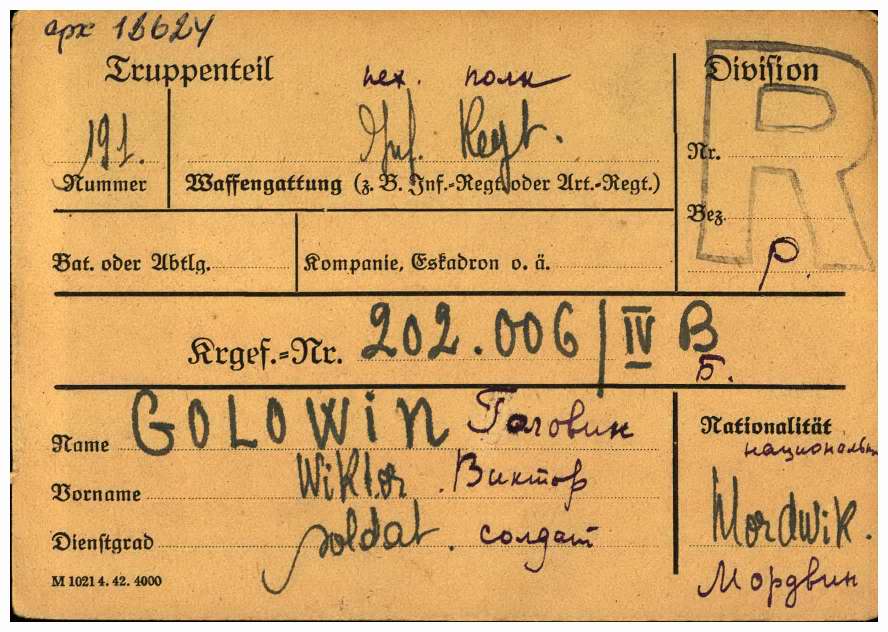 арх 12624
Truppenteil пех. полк Division
191. Inf. Regt. R
Nummer Waffengattung (z. B. Inf.-Regt. oder Art.-Regt.) Nr.
Bez.
Р
Bat. oder Abtlg. Kompanie, Eskadron o. ä.
Krgef.-Nr. 202.006/IV B
Б.
Name GOLOWiN Головин Nationalität
национальн
Vorname Wiktor. Виктор
Dienstgrad soldat. солдат Mordwin.
M 1021 4. 42. 4000 Мордвин